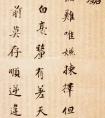 難唯嫌揀擇但
白毫釐有差天
前莫存順逆違